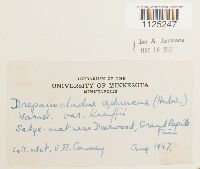 1125247
Jan A. Janssens
HERBARIUM OF THE
UNIVERSITY OF MINNESOTA
MINNEAPOLIS
Drepanocladus aduncus (Hedw.)
Warnst. var. Kneiffii
Sedge-mat near Deerwood, Grand Rapids
Coll. & det. H. Conway Aug 1947.